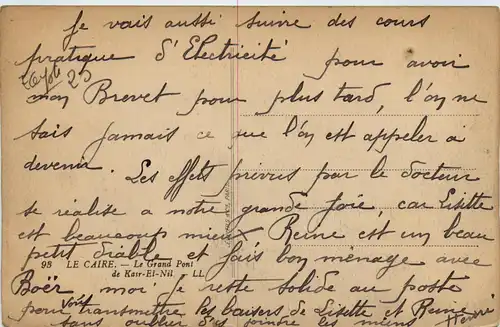 Je vais aussi suivre des cours
pratique d'Electricité pour avoir
mon Brevet pour plus tard, l'on ne
sais jamais ce que l'on est appeler a
devenir. Les effets prévus par le docteur
se réalise a notre grande joie, car Lisette
est beaucoup mieux Reine est un beau
petit diable et fais bon ménage avec
Boër moi je reste solide au poste
pour vous transmettre les baisers de Lisette et Reine
sans oublier d'y joindre les miens
98 LE CAIRE. — Le Grand Pont
de Kasr-El-Nil. LL